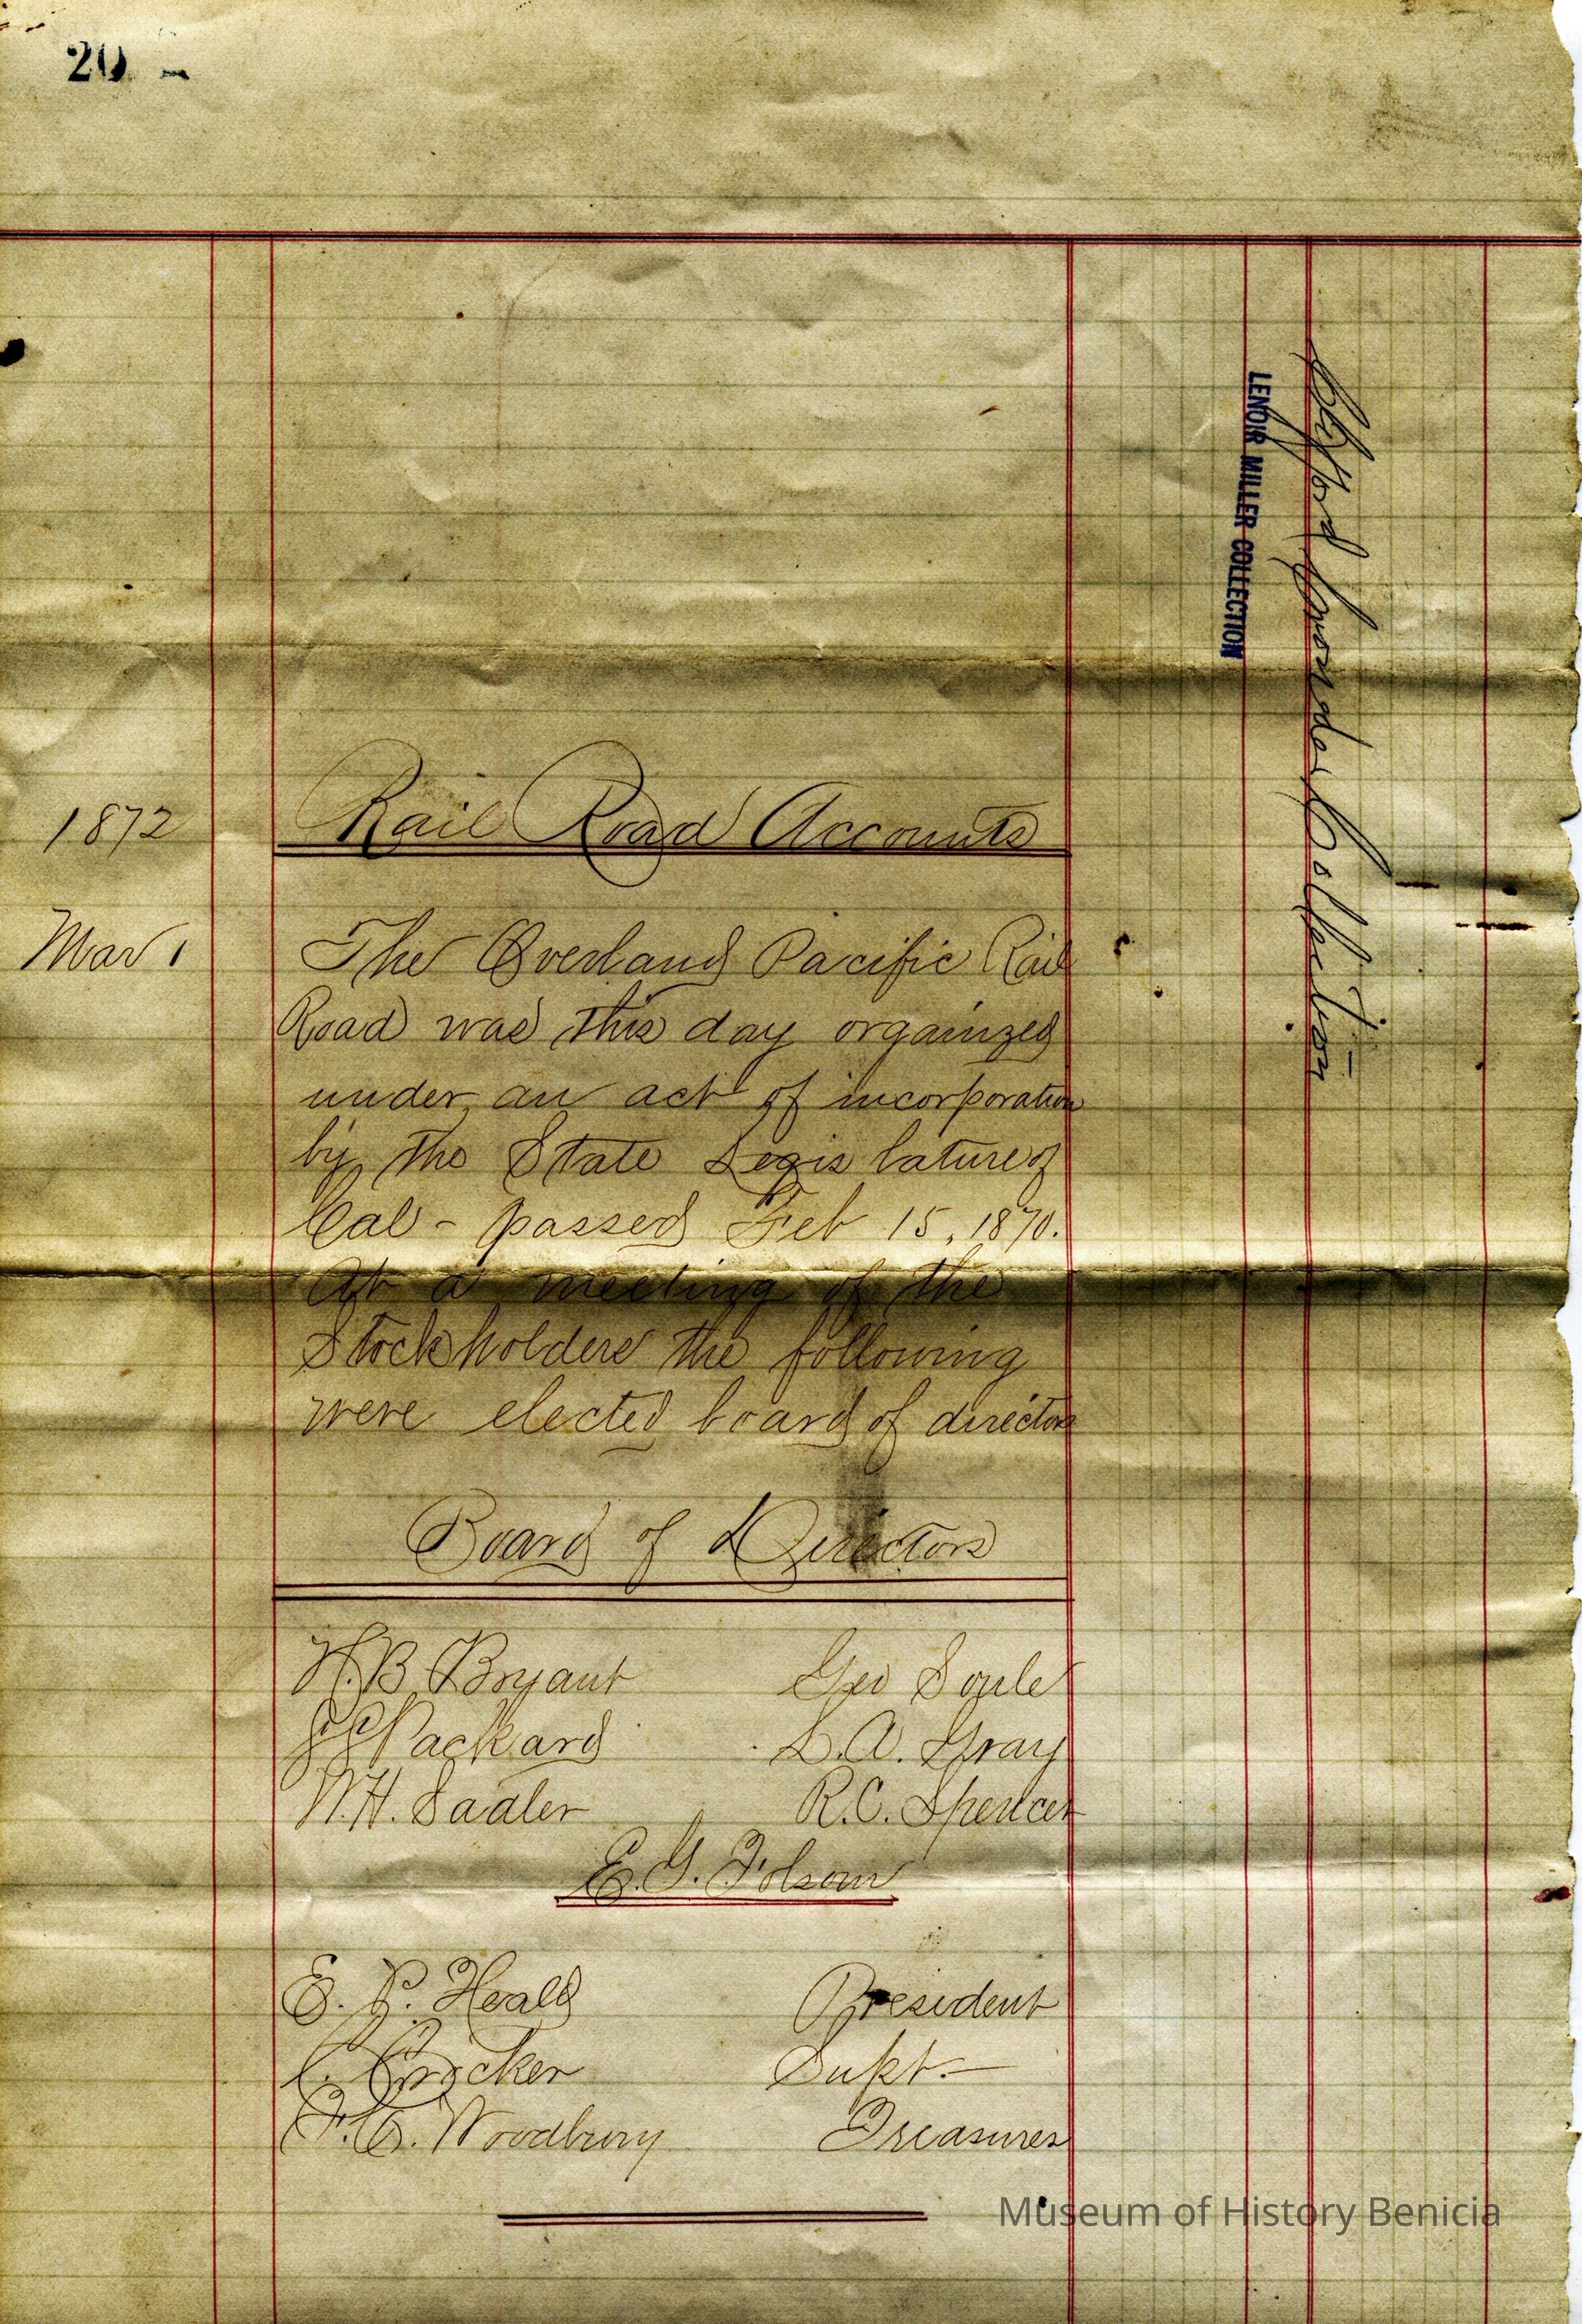 20
LENOIR MILLER COLLECTION
Clifford Collection
1872 Rail Road Accounts
Mar 1 The Overland Pacific Rail
Road was this day orgainzed
under an act of incorporation
by the State Legis lature of
Cal - passed Feb 15, 1870.
At a meeting of the
Stockholders the following
were elected board of directors
Board of Directors
H.B. Bryant Geo Soule
S.S. Packard L.A. Gray
W.H. Sadler R.C. Spencer
E.G. Folsom
E. P. Heald President
C. Crocker Supt.
F.C. Woodbury Treasurer
Museum of History Benicia